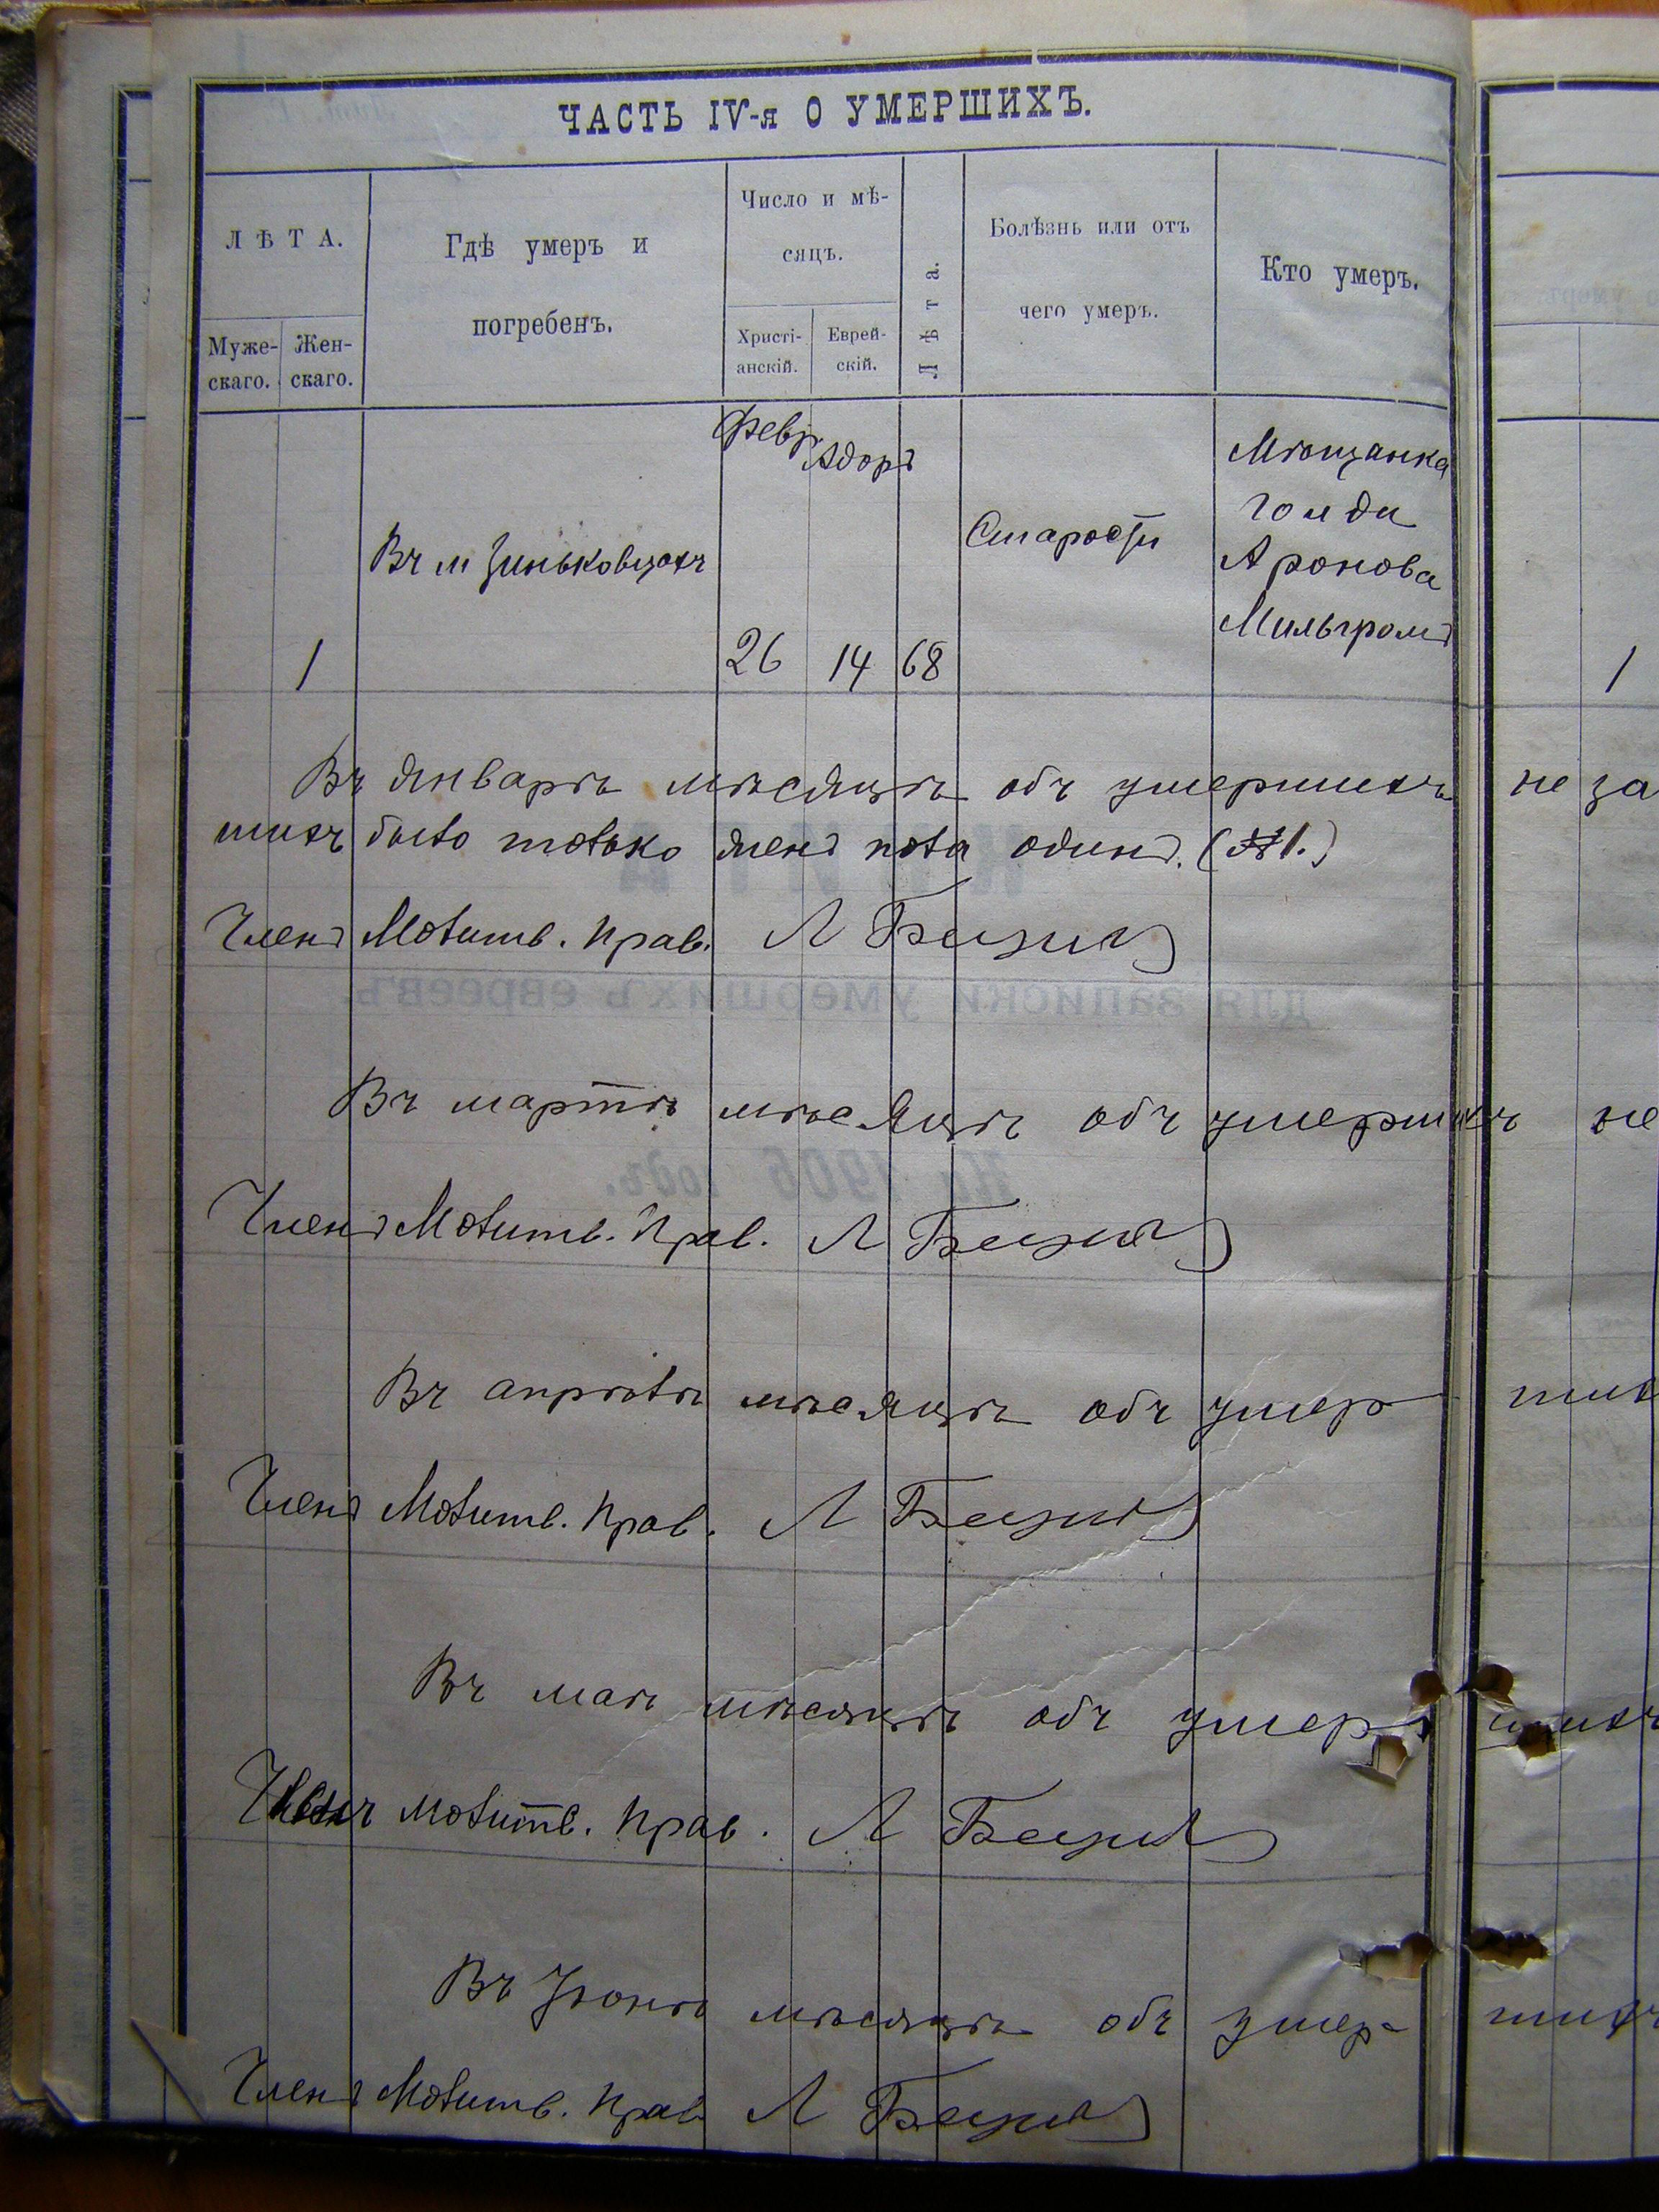 ЧАСТЬ IV-я О УМЕРШИХЪ.
ЛѢТА.
Муже-
скаго.
Жен-
скаго.
Гдѣ умеръ и
погребенъ.
Число и мѣ-
сяцъ.
Христі-
анскій.
Еврей-
скій.
Лѣта.
Болѣзнь или отъ
чего умеръ.
Кто умеръ.
Февр.
Адоръ
Мѣщанка
Голда
Аронова
Мильгромъ
Въ м Зиньковцахъ
Старости
1
26
14
68
1
Въ Январѣ мѣсяцѣ объ умершихъ не за
шихъ было только жен пола одинъ. (№1.)
Членъ Молитв. Прав.
Въ мартѣ мѣсяцѣ объ умершихъ не
Членъ Молитв. Прав.
Въ апрѣлѣ мѣсяцѣ объ умер- ших
Членъ Молитв. Прав.
Въ маѣ мѣсяцѣ объ умер- шихъ
Членъ молитв. Прав.
Въ Іюнѣ мѣсяцѣ объ умер- шихъ
Членъ Молитв. Прав
КНИГА
для записки умершихъ евреевъ.
На 1906 годъ.